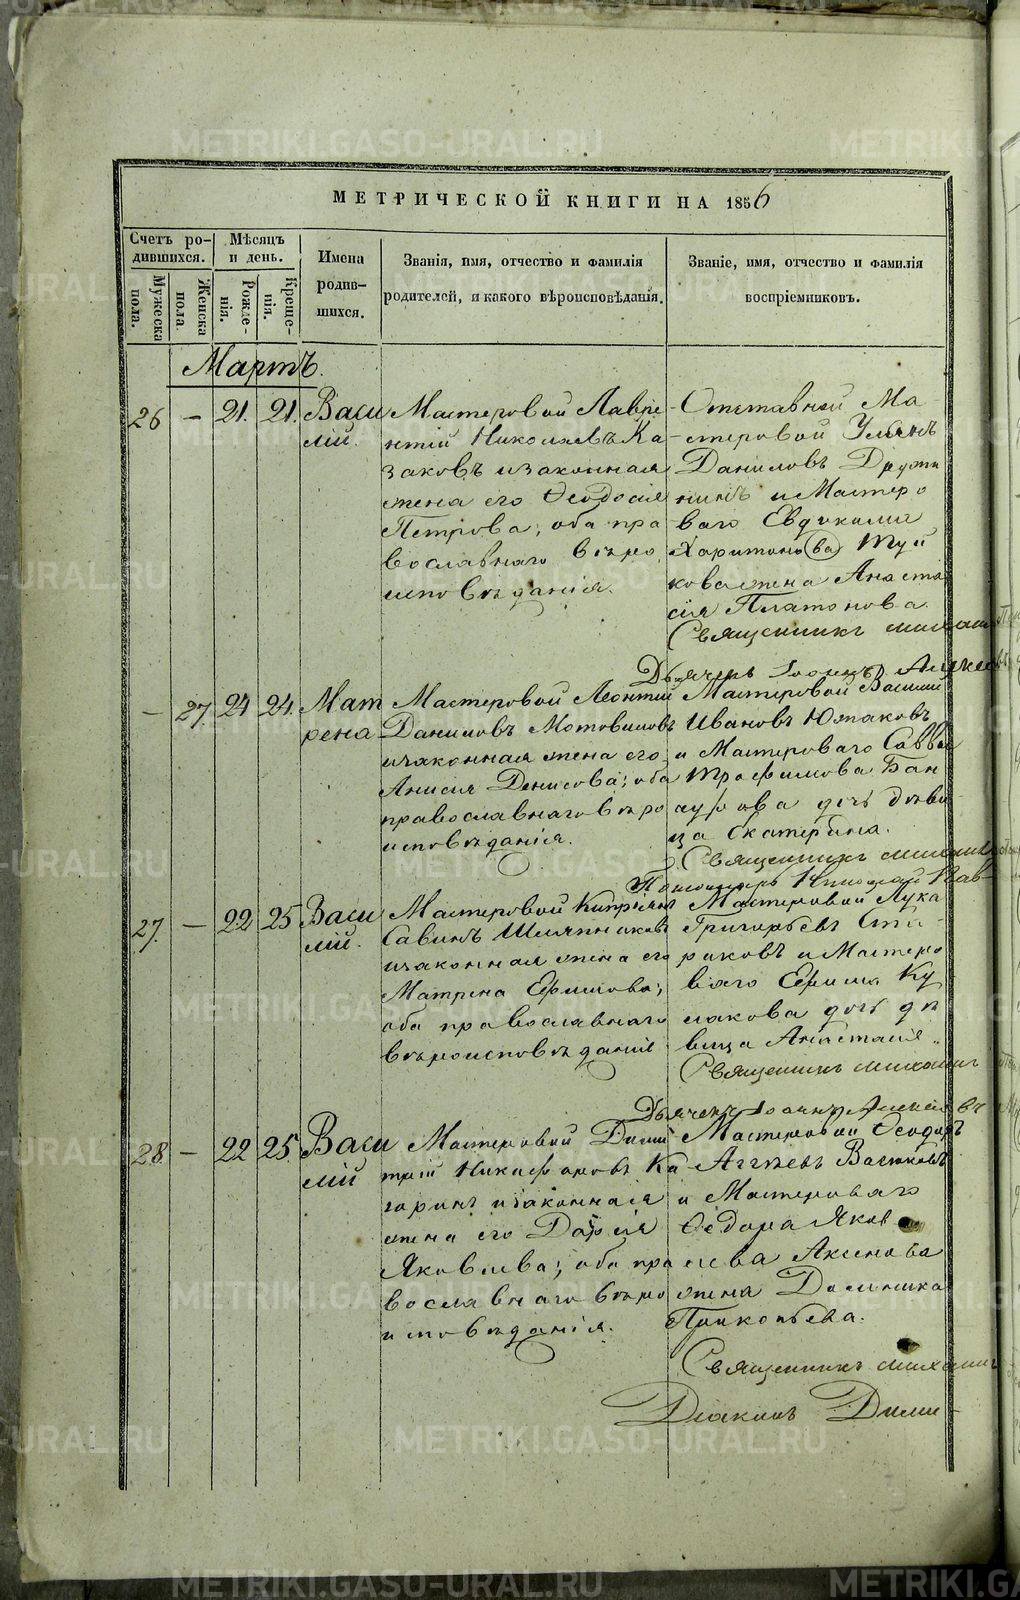 METRIKI.GASO-URAL.RU
МЕТРИЧЕСКОЙ КНИГИ НА 1856
Счетъ ро-
дившихся.
Мѣсяцъ
и день.
Мужеска
пола.
Женска
пола
Рожде-
нія.
Креще-
нія.
Имена
родив-
шихся.
Званія, имя, отчество и фамилія
родителей, и какого вѣроисповѣданія.
Званіе, имя, отчество и фамилія
воспріемниковъ.
Мартъ.
26 – 21. 21. Васи
лій.
Мастеровой Лавре
нтій Николаевъ Ка
заковъ и законная
жена его Ѳеодосія
Петрова; оба пра
вославнаго вѣро
исповѣданія.
Отставной Ма-
стеровой Ульянъ
Даниловъ Дружи
нинъ и Мастеро
ваго Евдокима
Харитоно(ва)
кова жена Анаста
сія Платонова.
Священникъ Михаил
Дьячекъ Іоаннъ Алексѣевъ
– 27. 24 24. Мат
рена
Мастеровой Леонтий
Даниловъ Мотовиловъ
и законная жена его
Анисия Денисова; оба
православнаго вѣро
исповѣданія.
Мастеровой Василий
Ивановъ Южаковъ
и Мастероваго Саввы
Трофимова
дочь дѣви
ца Екатерина.
Священникъ Михаил
Пономарь Николай Пав-
27. – 22 25 Васи
лій.
Мастеровой Кипріянъ
Савинъ Шляпниковъ
и законная жена его
Матрена Ефимова;
оба православнаго
вѣроисповѣданія
Мастеровой Лука
Григорьевъ Ста
риковъ и Мастеро
ваго Ефима Ку
лакова дочь дѣ
вица Анастасія.
Священникъ Михаил
Дьячекъ Іоаннъ Алексѣевъ
28 – 22 25. Васи
лій
Мастеровой Дими
трій Никифоровъ Ка
таринъ и законная
жена его Дарія
Яковлева; оба пра
вославнаго вѣро
исповѣданія.
Мастеровой Ѳеодоръ
Аггѣевъ Васюковъ
и Мастероваго
Ѳедора Яков
лева Аксенова
жена Домника
Прокопьева.
Священникъ Михаил
Діаконъ Дими-